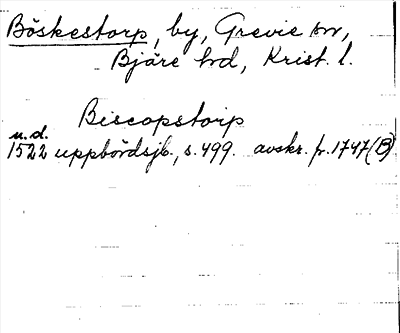 Böskestorp, by, Grevie sn,
Bjäre hd, Krist. l.
Biscopstorp
u. d.
1522 uppbördsjb., s. 499. avskr. fr. 1747 (B)